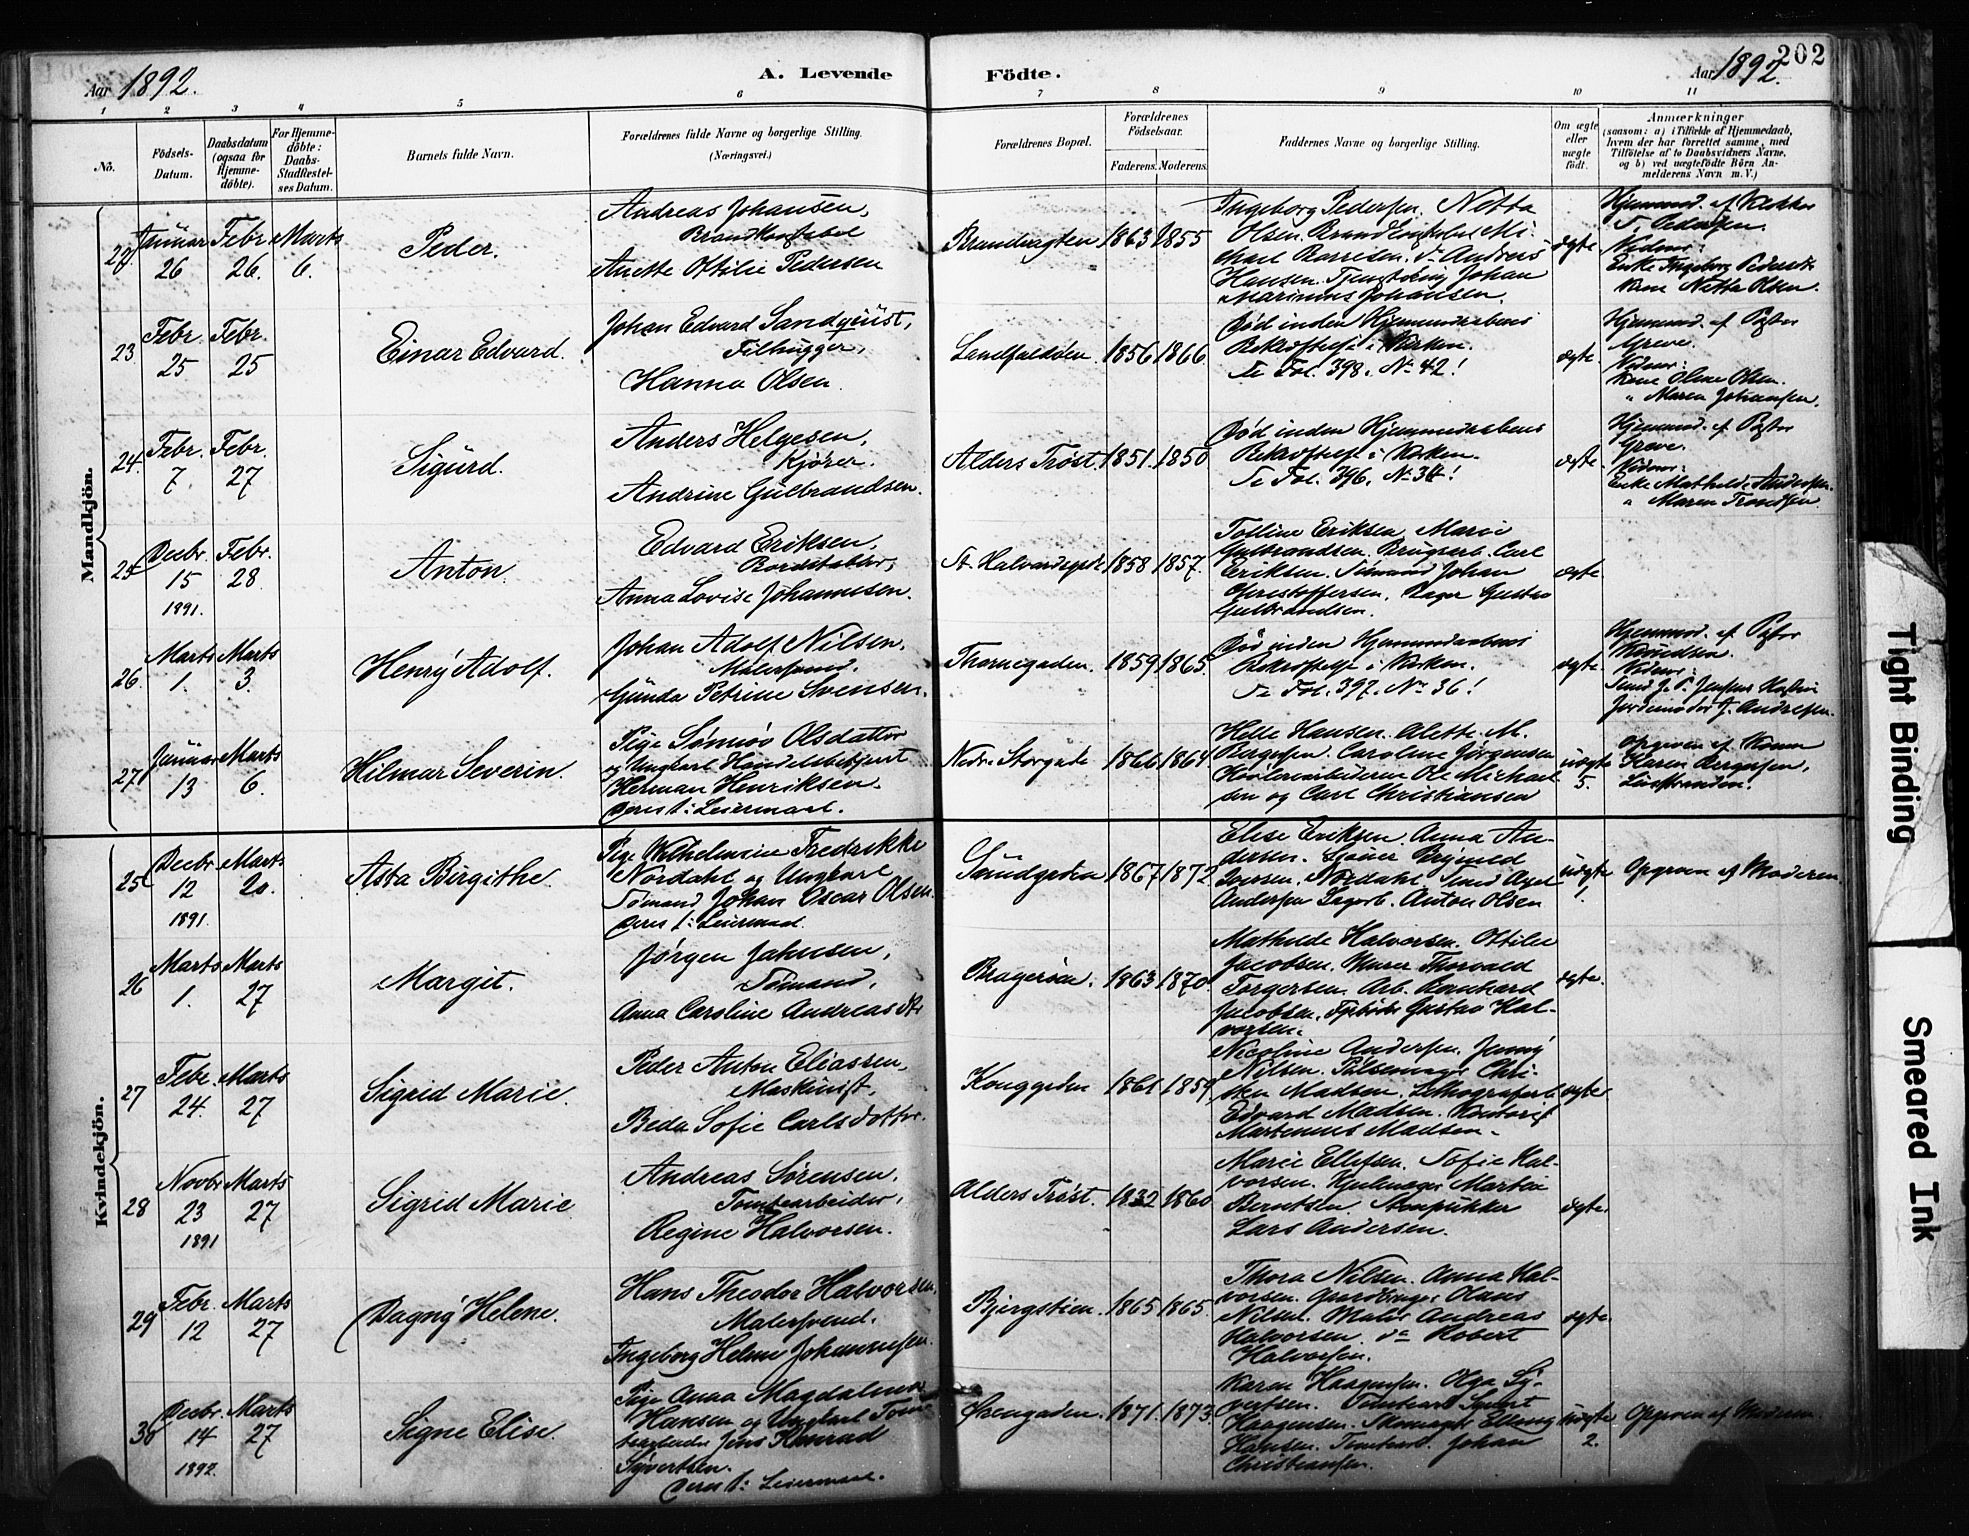 Aar 1892.
A. Levende Födte.
Aar 1892.
202
1 2 3 4 5 6 7 8 9 10 11
No.
Födsels-Datum.
Daabsdatum (ogsaa for Hjemme-döbte).
For Hjemme-döbte: Daabs-Stadfæstel-ses Datum.
Barnets fulde Navn.
Forældrenes fulde Navne og borgerlige Stilling.
(Næringsvei.)
Forældrenes Bopæl.
Forældrenes Födselsaar.
Faderens. Moderens.
Faddernes Navne og borgerlige Stilling.
Om ægte eller uægte födt.
Anmærkninger
(saasom: a) i Tilfælde af Hjemmedaab,
hvem der har forrettet samme, med
Tilföielse af to Daabsvidners Navne,
og b) ved uægtefödte Börn An-
melderens Navn m. V.)
Mandkjön.
22.
Januar 26
Febr. 26.
Marts 6.
Peder.
Andreas Johansen,
Brandkonstabel
Anette Ottilie Pedersen
Brandvagten
1863 1855
Ingeborg Pedersen. Netta
Olsen. Brandkonstabel Mi-
chael Hansen. Johan
Marinius Johansen.
ægte.
Hjemmed. af
T. Pedersen.
Vidner:
Enke Ingeborg Pedersen
Kone Netta Olsen.
23
Febr. 25
Febr. 25
Einar Edvard.
Johan Edvard Sandqvist,
Filhugger,
Hanna Olsen.
Landfaldöen.
1856 1866
Död inden Hjemmedaabens
Bekræftelse i Kirken.
Se Fol. 398. No 42!
ægte.
Hjemmed. af Pastor
Greve.
Vidner:
Kone Oline Olsen.
" Maren Johansen.
24.
Febr. 7.
Febr. 27
Sigurd.
Anders Helgesen,
Kjörer.
Andrine Gulbrandsen.
Alders Tröst.
1851. 1850
Död inden Hjemmedaabens
Bekræftelse i Kirken.
Se Fol. 396. No 34!
ægte.
Hjemmed. af Pastor
Greve.
Vidner:
Enke Mathilde Andersen.
" Maren
25
Decbr. 15 1891.
Febr. 28
Anton.
Edvard Eriksen,
Bordstabler,
Anna Lovise Johannesen.
St. Halvardsgade
1858 1857.
Eriksen, Marie
Gulbrandsen. Carl
Eriksen. Sömand Johan
Christoffersen. Gustav
Gulbrandsen.
ægte.
26.
Marts 1.
Marts 3.
Henry Adolf.
Johan Adolf Nilsen,
Malersvend.
Gunda Petrine Svensen.
Thornegaden.
1859 1865.
Död inden Hjemmedaabens
Bekræftelse i Kirken.
Se Fol. 397. No 36!
ægte
Hjemmed. af Pastor
Vidner:
Jordemoder J. Andresen.
27.
Januar 13
Marts 6.
Hilmar Severin.
Pige Olsdatter
og Ungkarl Handelsbetjent
Herman Henriksen.
Deres 1: Leiermaal.
Nedre Storgade
1866 1864
Helle Hansen. Alette M.
Bergersen. Caroline Jörgensen
Ole Michael-
sen og Carl Christiansen
uægte 5.
Opgiven af Konen
Karen Bergersen,
Kvindekjön.
25
Decbr. 12 1891.
Marts 20.
Asta Birgithe.
Pige Wilhelmine Fredrikke
Nordahl og Ungkarl
Sömand Johan Oscar Olsen.
Deres 1: Leiermaal
Sundgaden
1867 1872
Elise Eriksen. Anna An-
dersen. Axel
Andersen. Anton Olsen
uægte 1.
Opgiven af Moderen.
26
Marts 1.
Marts 27
Margit.
Jörgen Jahnsen,
Sömand,
Anna Caroline Andreasdtr
Brageröen.
1863 1870.
Mathilde Halvorsen. Ottilie
Jacobsen. Murer Thorvald
Torgersen. Arb.
Jacobsen. Gustav Hal-
vorsen.
ægte.
27
Febr. 24.
Marts 27
Sigrid Marie.
Peder Anton Eliassen,
Maskinist,
Beda Sofie Carlsdotter.
Konggaden
1861 1859.
Nicoline Andersen. Jenny
Nilsen. Pölsemager Chri-
sten Madsen. Lithograf
Edvard Madsen. Kontorist
Martinius Madsen.
ægte
28
Novbr 23 1891
Marts 27
Sigrid Marie
Andreas Sörensen,
Tomtearbeider,
Regine Halvorsen.
Alders Tröst.
1832 1860
Marie Ellefsen. Sofie Hal-
vorsen. Martin
Berntsen.
Lars Andersen.
ægte.
29
Febr. 12
Marts 27
Dagny Helene.
Hans Theodor Halvorsen,
Malersvend.
Ingeborg Helene Johannesen.
Bjergstien.
1865 1865
Thora Nilsen. Anna Hal-
vorsen. Olaus
Nilsen. Maler Andreas
Halvorsen. do Robert
Halvorsen.
ægte.
30
Decbr. 14 1892.
Marts 27
Signe Elise.
Pige Anna Magdalena
Hansen og Ungkarl Tomte-
arbeider Jens Konrad
Syvertsen.
Deres 1: Leiermaal.
Örengaden.
1871. 1873.
Karen Haagensen. Olga Sy-
vertsen.
Haagensen. Skomager
Hansen. Tomtearb. Johan
Christiansen.
uægte 2.
Opgiven af Moderen.
Tight Binding
Smeared Ink